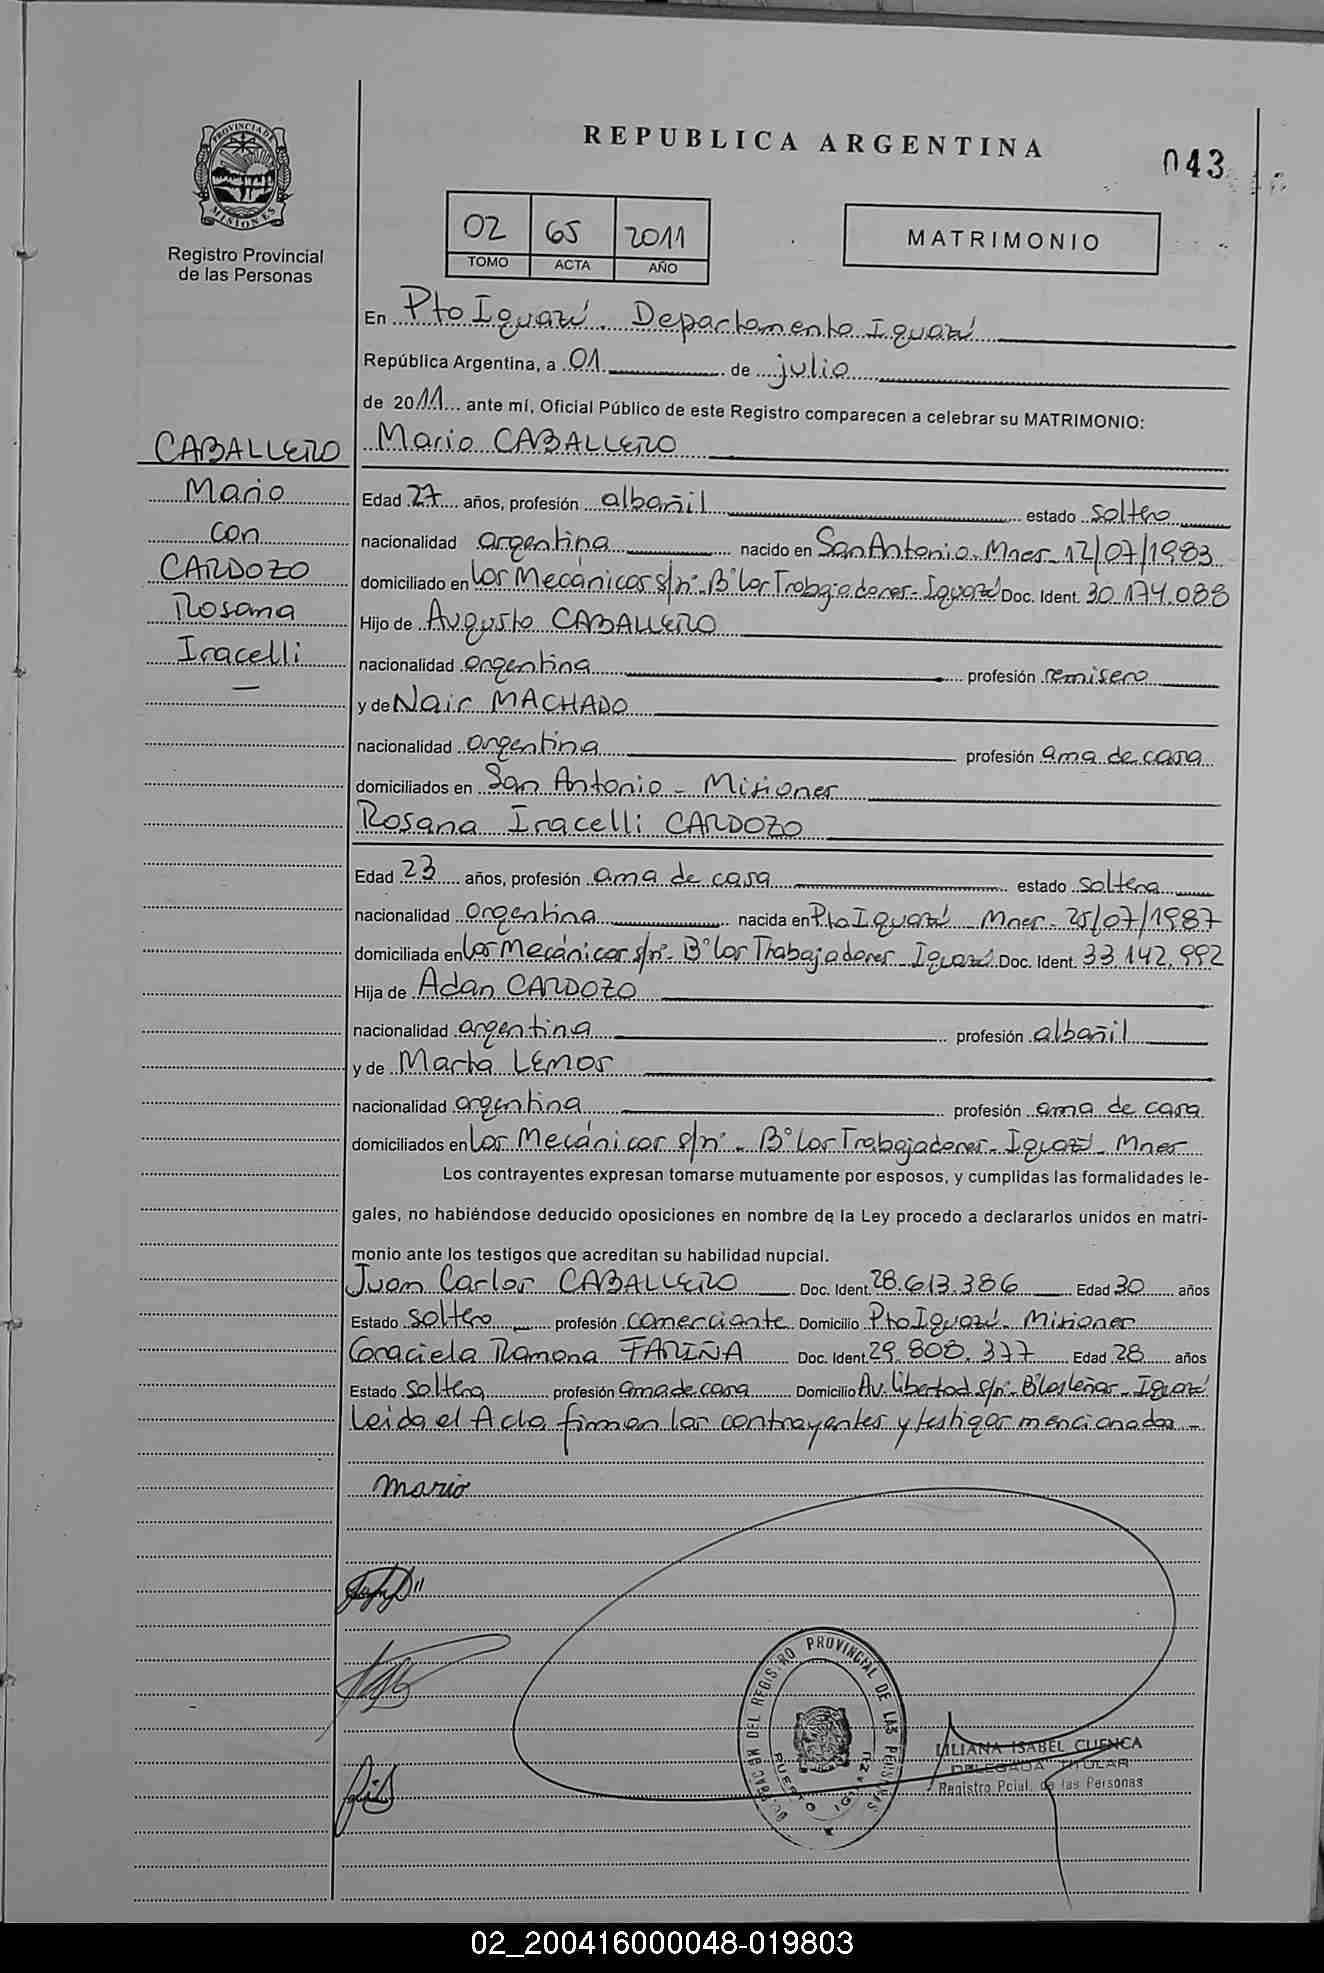 PROVINCIA DE
MISIONES
Registro Provincial
de las Personas
REPUBLICA ARGENTINA
043
02 65 2011
TOMO ACTA AÑO
MATRIMONIO
En Pto Iguazú. Departamento Iguazú
República Argentina, a 01 de julio
de 2011 ante mí, Oficial Público de este Registro comparecen a celebrar su MATRIMONIO:
CABALLERO
Mario
con
CARDOZO
Rosana
Iracelli
Mario CABALLERO
Edad 27 años, profesión albañil estado soltero
nacionalidad argentina nacido en San Antonio. Mnes. 12/07/1983
domiciliado en Los Mecánicos s/nº. Bº Los Trabajadores. Iguazú Doc. Ident. 30.174.088
Hijo de Augusto CABALLERO
nacionalidad argentina profesión remisero
y de Nair MACHADO
nacionalidad argentina profesión ama de casa
domiciliados en San Antonio - Misiones
Rosana Iracelli CARDOZO
Edad 23 años, profesión ama de casa estado soltera
nacionalidad argentina nacida en Pto Iguazú - Mnes. 25/07/1987
domiciliada en Los Mecánicos s/nº. Bº Los Trabajadores - Iguazú Doc. Ident. 33.142.992
Hija de Adan CARDOZO
nacionalidad argentina profesión albañil
y de Marta LEMOS
nacionalidad argentina profesión ama de casa
domiciliados en Los Mecánicos s/nº - Bº Los Trabajadores - Iguazú - Mnes
Los contrayentes expresan tomarse mutuamente por esposos, y cumplidas las formalidades le-
gales, no habiéndose deducido oposiciones en nombre de la Ley procedo a declararlos unidos en matri-
monio ante los testigos que acreditan su habilidad nupcial.
Juan Carlos CABALLERO Doc. Ident. 28.613.386 Edad 30 años
Estado soltero profesión comerciante Domicilio Pto Iguazú - Misiones
Graciela Ramona FARIÑA Doc. Ident. 29.808.377 Edad 28 años
Estado soltera profesión ama de casa Domicilio Av. libertad s/nº - Bº Las Leñas - Iguazú
Leida el Acta firman los contrayentes y testigos mencionados -
mario
DELEGACION DEL REGISTRO PROVINCIAL DE LAS PERSONAS
PUERTO IGUAZU
LILIANA ISABEL CUENCA
DELEGADA TITULAR
Registro Pcial. de las Personas
02_200416000048-019803